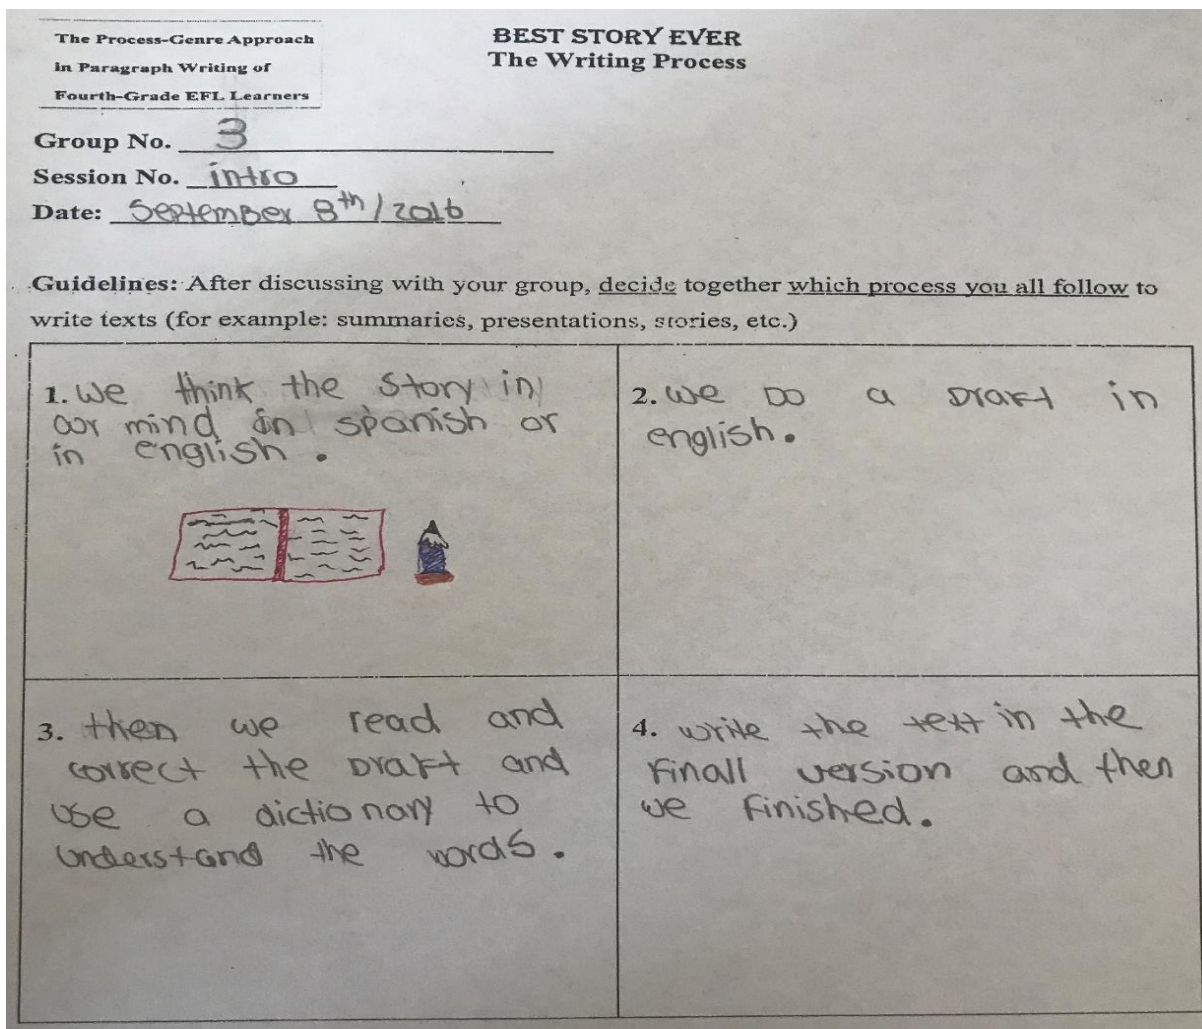 The Process-Genre Approach
in Paragraph Writing of
Fourth-Grade EFL Learners
BEST STORY EVER
The Writing Process
Group No. 3
Session No. intro
Date: September 8th/2016
Guidelines: After discussing with your group, decide together which process you all follow to
write texts (for example: summaries, presentations, stories, etc.)
1. we think the story in
our mind in spanish or
in english.
2. we Do a Draft in
english.
3. then we read and
correct the Draft and
use a dictionary to
understand the words.
4. write the text in the
Finall version and then
we finished.